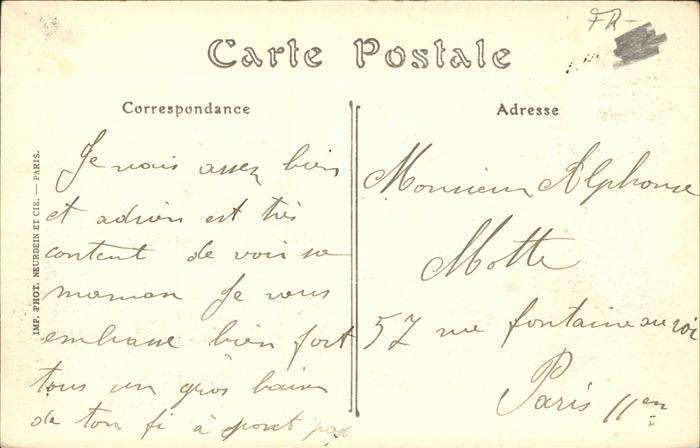 FR-
Carte Postale
Correspondance
Je vais assez bien
et adrien est très
content de voir sa
maman Je vous
embrasse bien fort
tous un gros baiser
de ton fi à
Adresse
Monsieur Alphonse
Motte
57 rue fontaine au roi
Paris 11en
IMP. PHOT. NEURDEIN ET CIE. — PARIS.